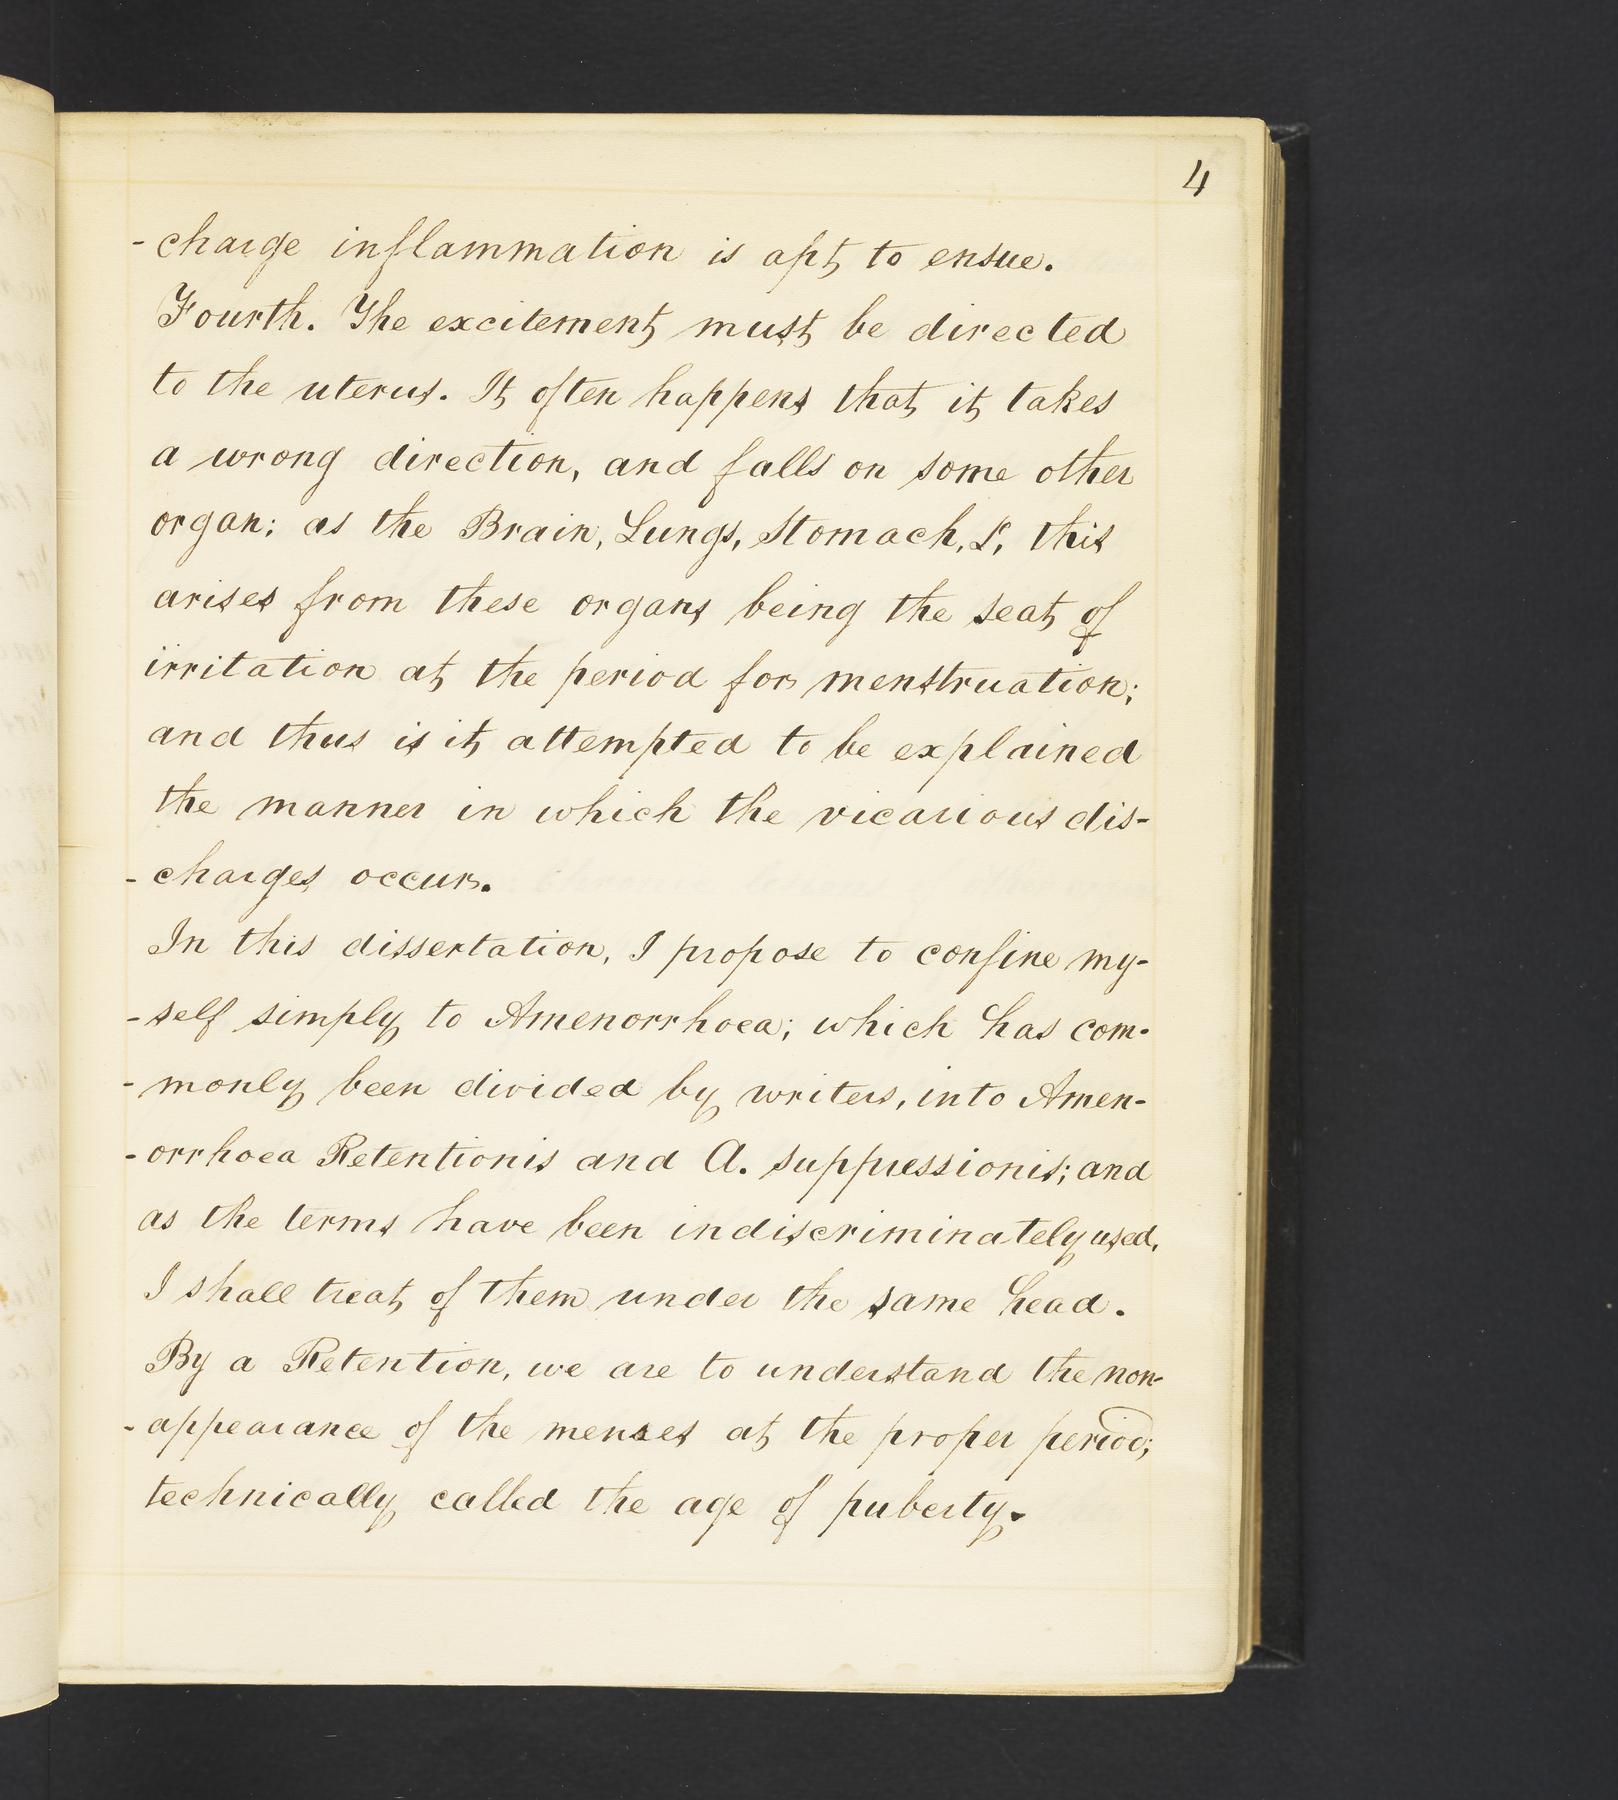 4
-charge inflammation is apt to ensue.
Fourth. The excitement must be directed
to the uterus. It often happens that it takes
a wrong direction, and falls on some other
organ: as the Brain, Lungs, Stomach, &, this
arises from these organs being the seat of
irritation at the period for menstruation;
and thus is it attempted to be explained
the manner in which the vicarious dis-
-charges occur.
In this dissertation, I propose to confine my-
-self simply to Amenorrhoea; which has com-
-monly been divided by writers, into Amen-
-orrhoea Retentionis and A. suppressionis; and
as the terms have been indiscriminately used,
I shall treat of them under the same head.
By a Retention, we are to understand the non-
-appearance of the menses at the proper period;
technically called the age of puberty.